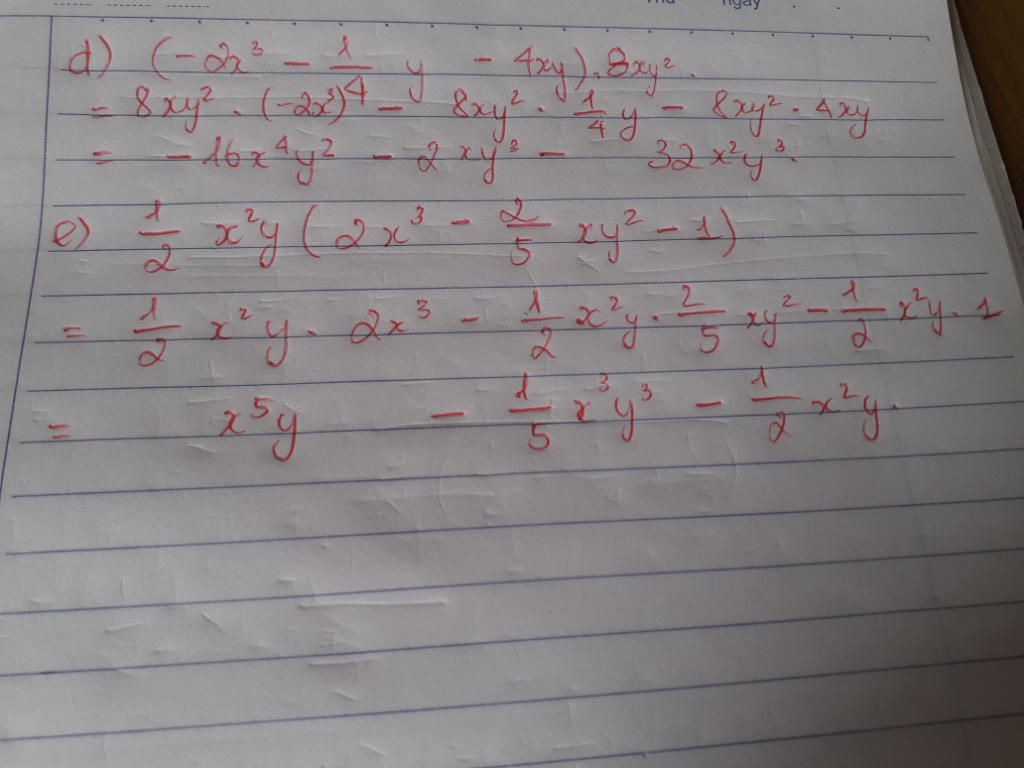 Thứ ngày
d) (-2x³ - 1/4 y - 4xy).8xy².
= 8xy² . (-2x³) - 8xy² . 1/4 y - 8xy² . 4xy
= -16x⁴y² - 2xy³ - 32x²y³.
e) 1/2 x²y (2x³ - 2/5 xy² - 1)
= 1/2 x²y . 2x³ - 1/2 x²y . 2/5 xy² - 1/2 x²y . 1
= x⁵y - 1/5 x³y³ - 1/2 x²y.